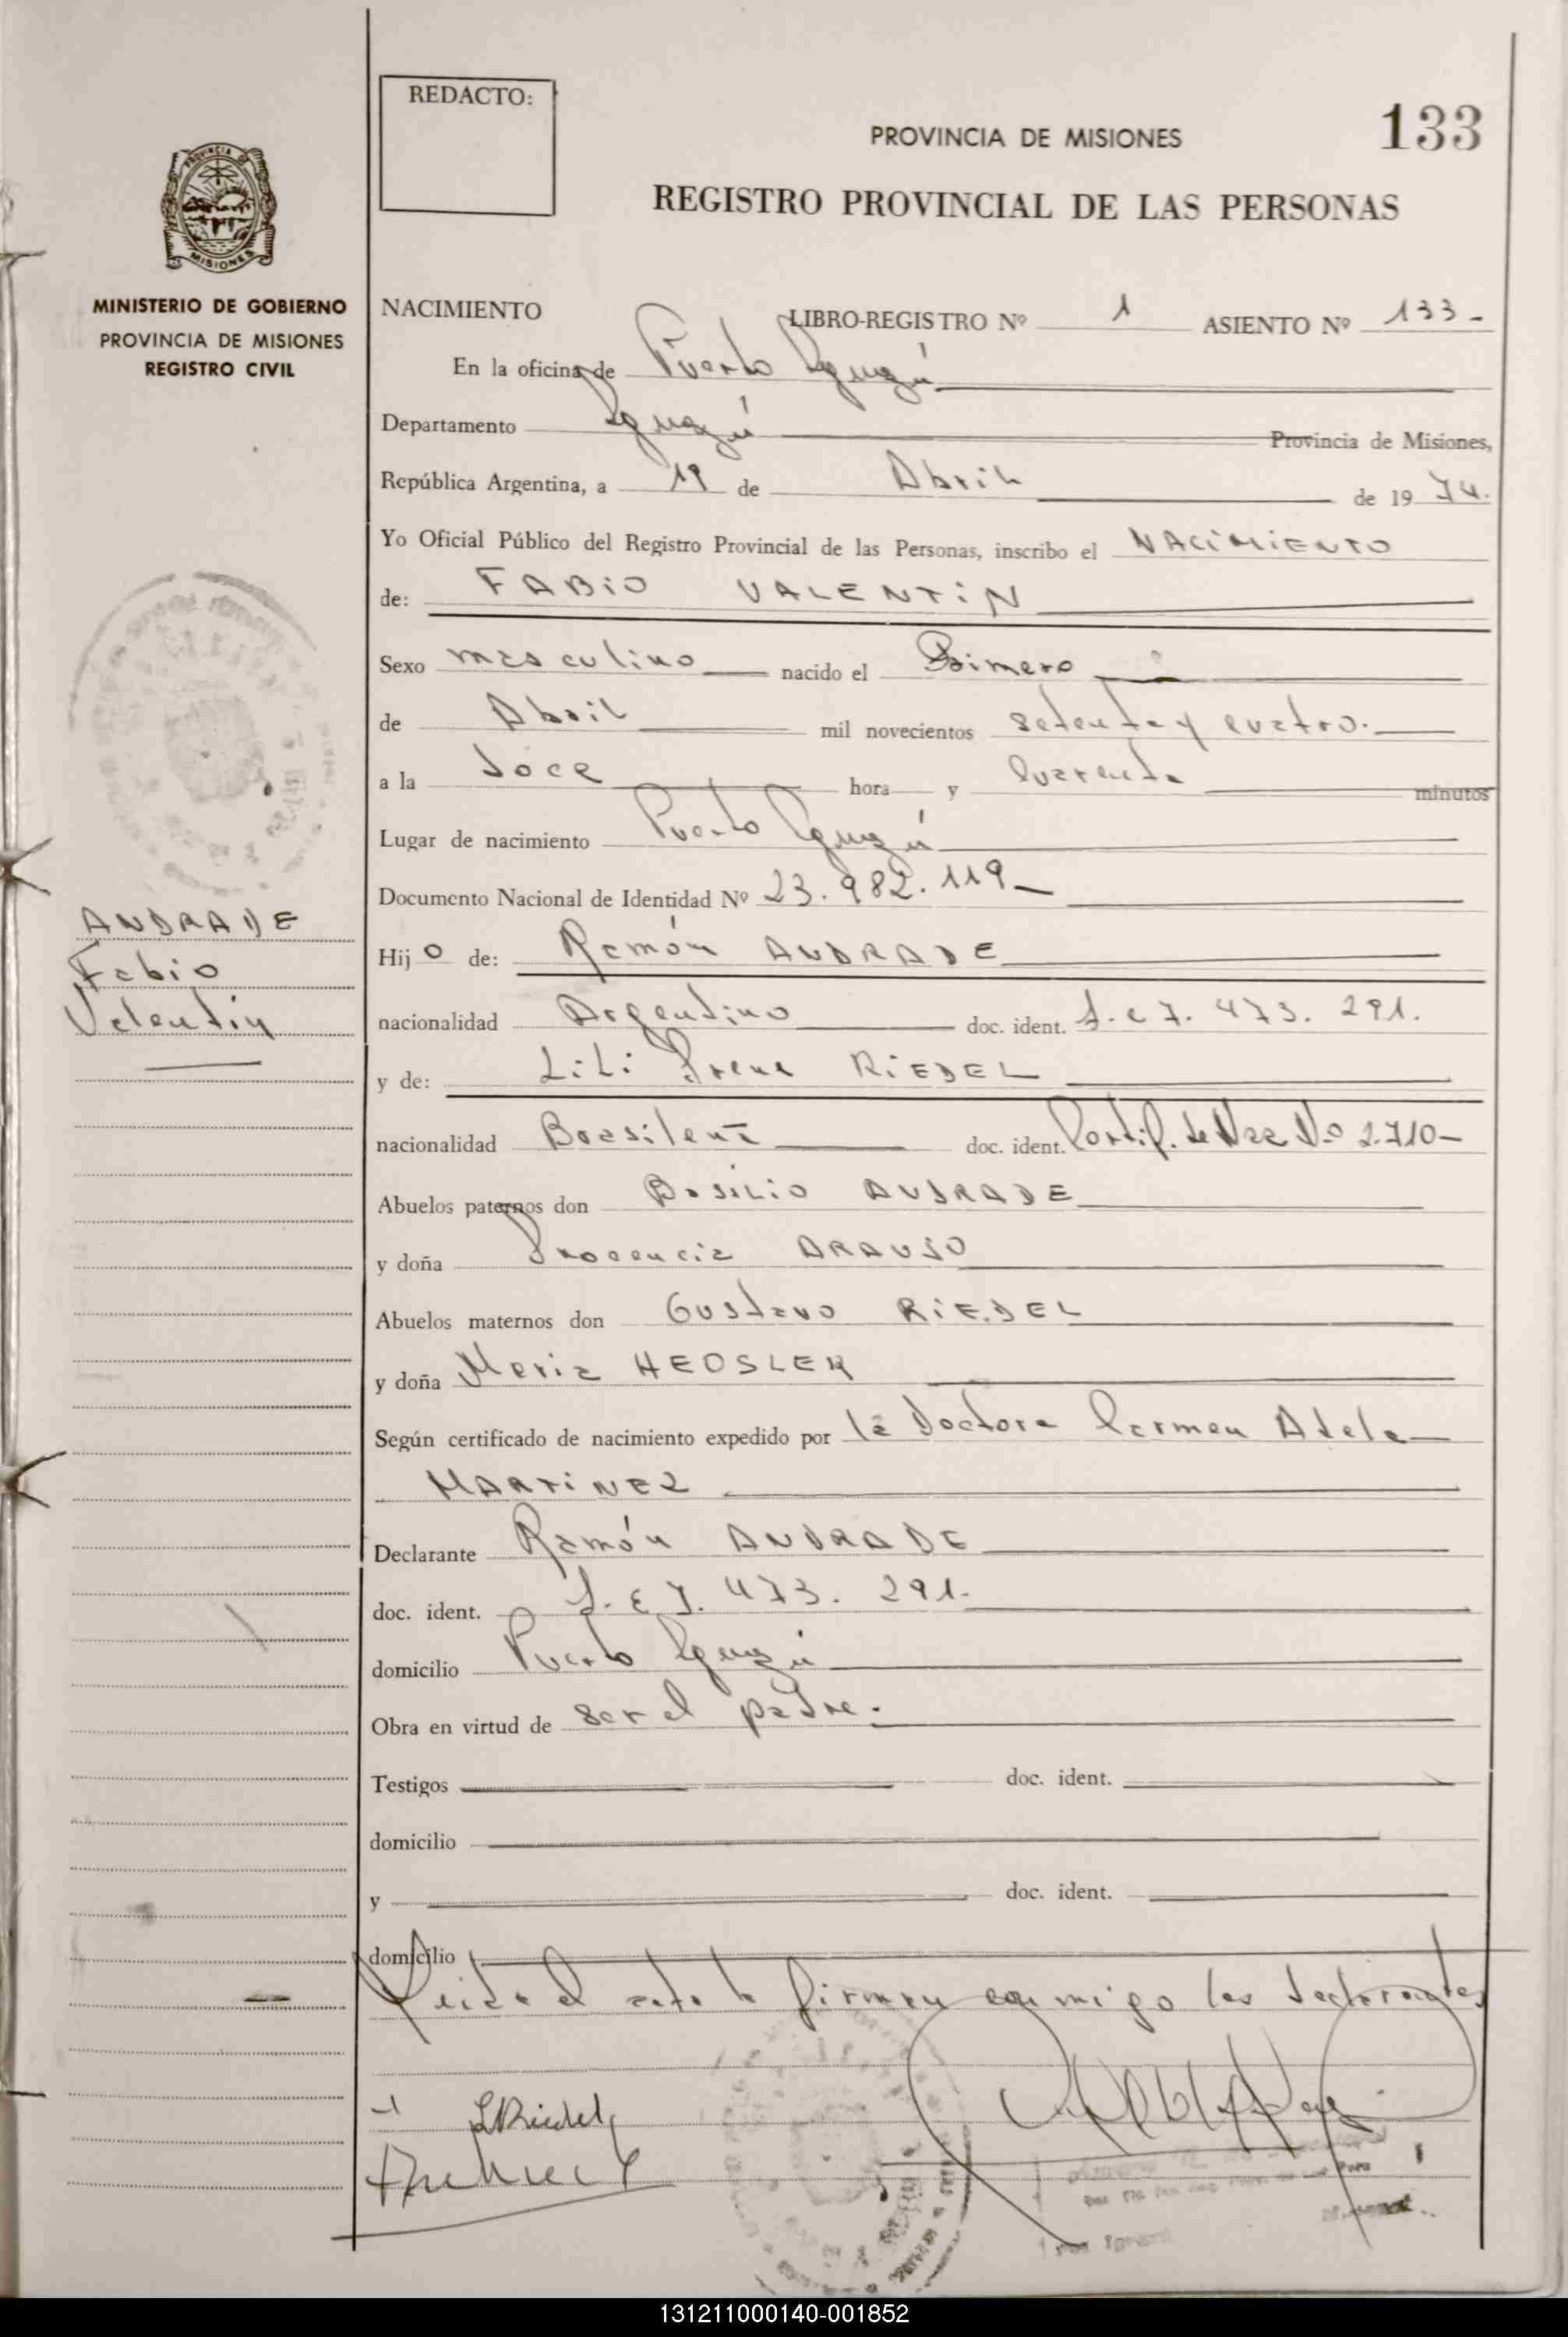 REDACTO:
133
PROVINCIA DE MISIONES
REGISTRO PROVINCIAL DE LAS PERSONAS
PROVINCIA DE
MISIONES
MINISTERIO DE GOBIERNO
PROVINCIA DE MISIONES
REGISTRO CIVIL
NACIMIENTO LIBRO-REGISTRO Nº 1 ASIENTO Nº 133-
En la oficina de Puerto Iguazú
Departamento Iguazú Provincia de Misiones,
República Argentina, a 19 de Abril de 1974.
Yo Oficial Público del Registro Provincial de las Personas, inscribo el NACIMIENTO
de: FABIO VALENTIN
Sexo masculino nacido el Primero
de Abril mil novecientos setenta y cuatro.
a la doce hora y Cuarenta minutos
Lugar de nacimiento Puerto Iguazú
Documento Nacional de Identidad Nº 23.982.119-
ANDRADE
Fabio
Valentin
Hijo de: Ramón ANDRADE
nacionalidad Argentino doc. ident. L.E 7.473.291.
y de: LiLi Irene RIEDEL
nacionalidad Brasilena doc. ident. Certif. de Nac Nº 2.710-
Abuelos paternos don BASILIO ANDRADE
y doña Inocencia ARAUJO
Abuelos maternos don Gustavo RIEDEL
y doña Maria HEOSLER
Según certificado de nacimiento expedido por la Doctora Carmen Adela
MARTINEZ
Declarante Ramón ANDRADE
doc. ident. L.E 7.473.291.
domicilio Puerto Iguazú
Obra en virtud de ser el padre.
Testigos doc. ident.
domicilio
y doc. ident.
domicilio
Leida el acta la firman conmigo los declarantes
LRiedel
131211000140-001852